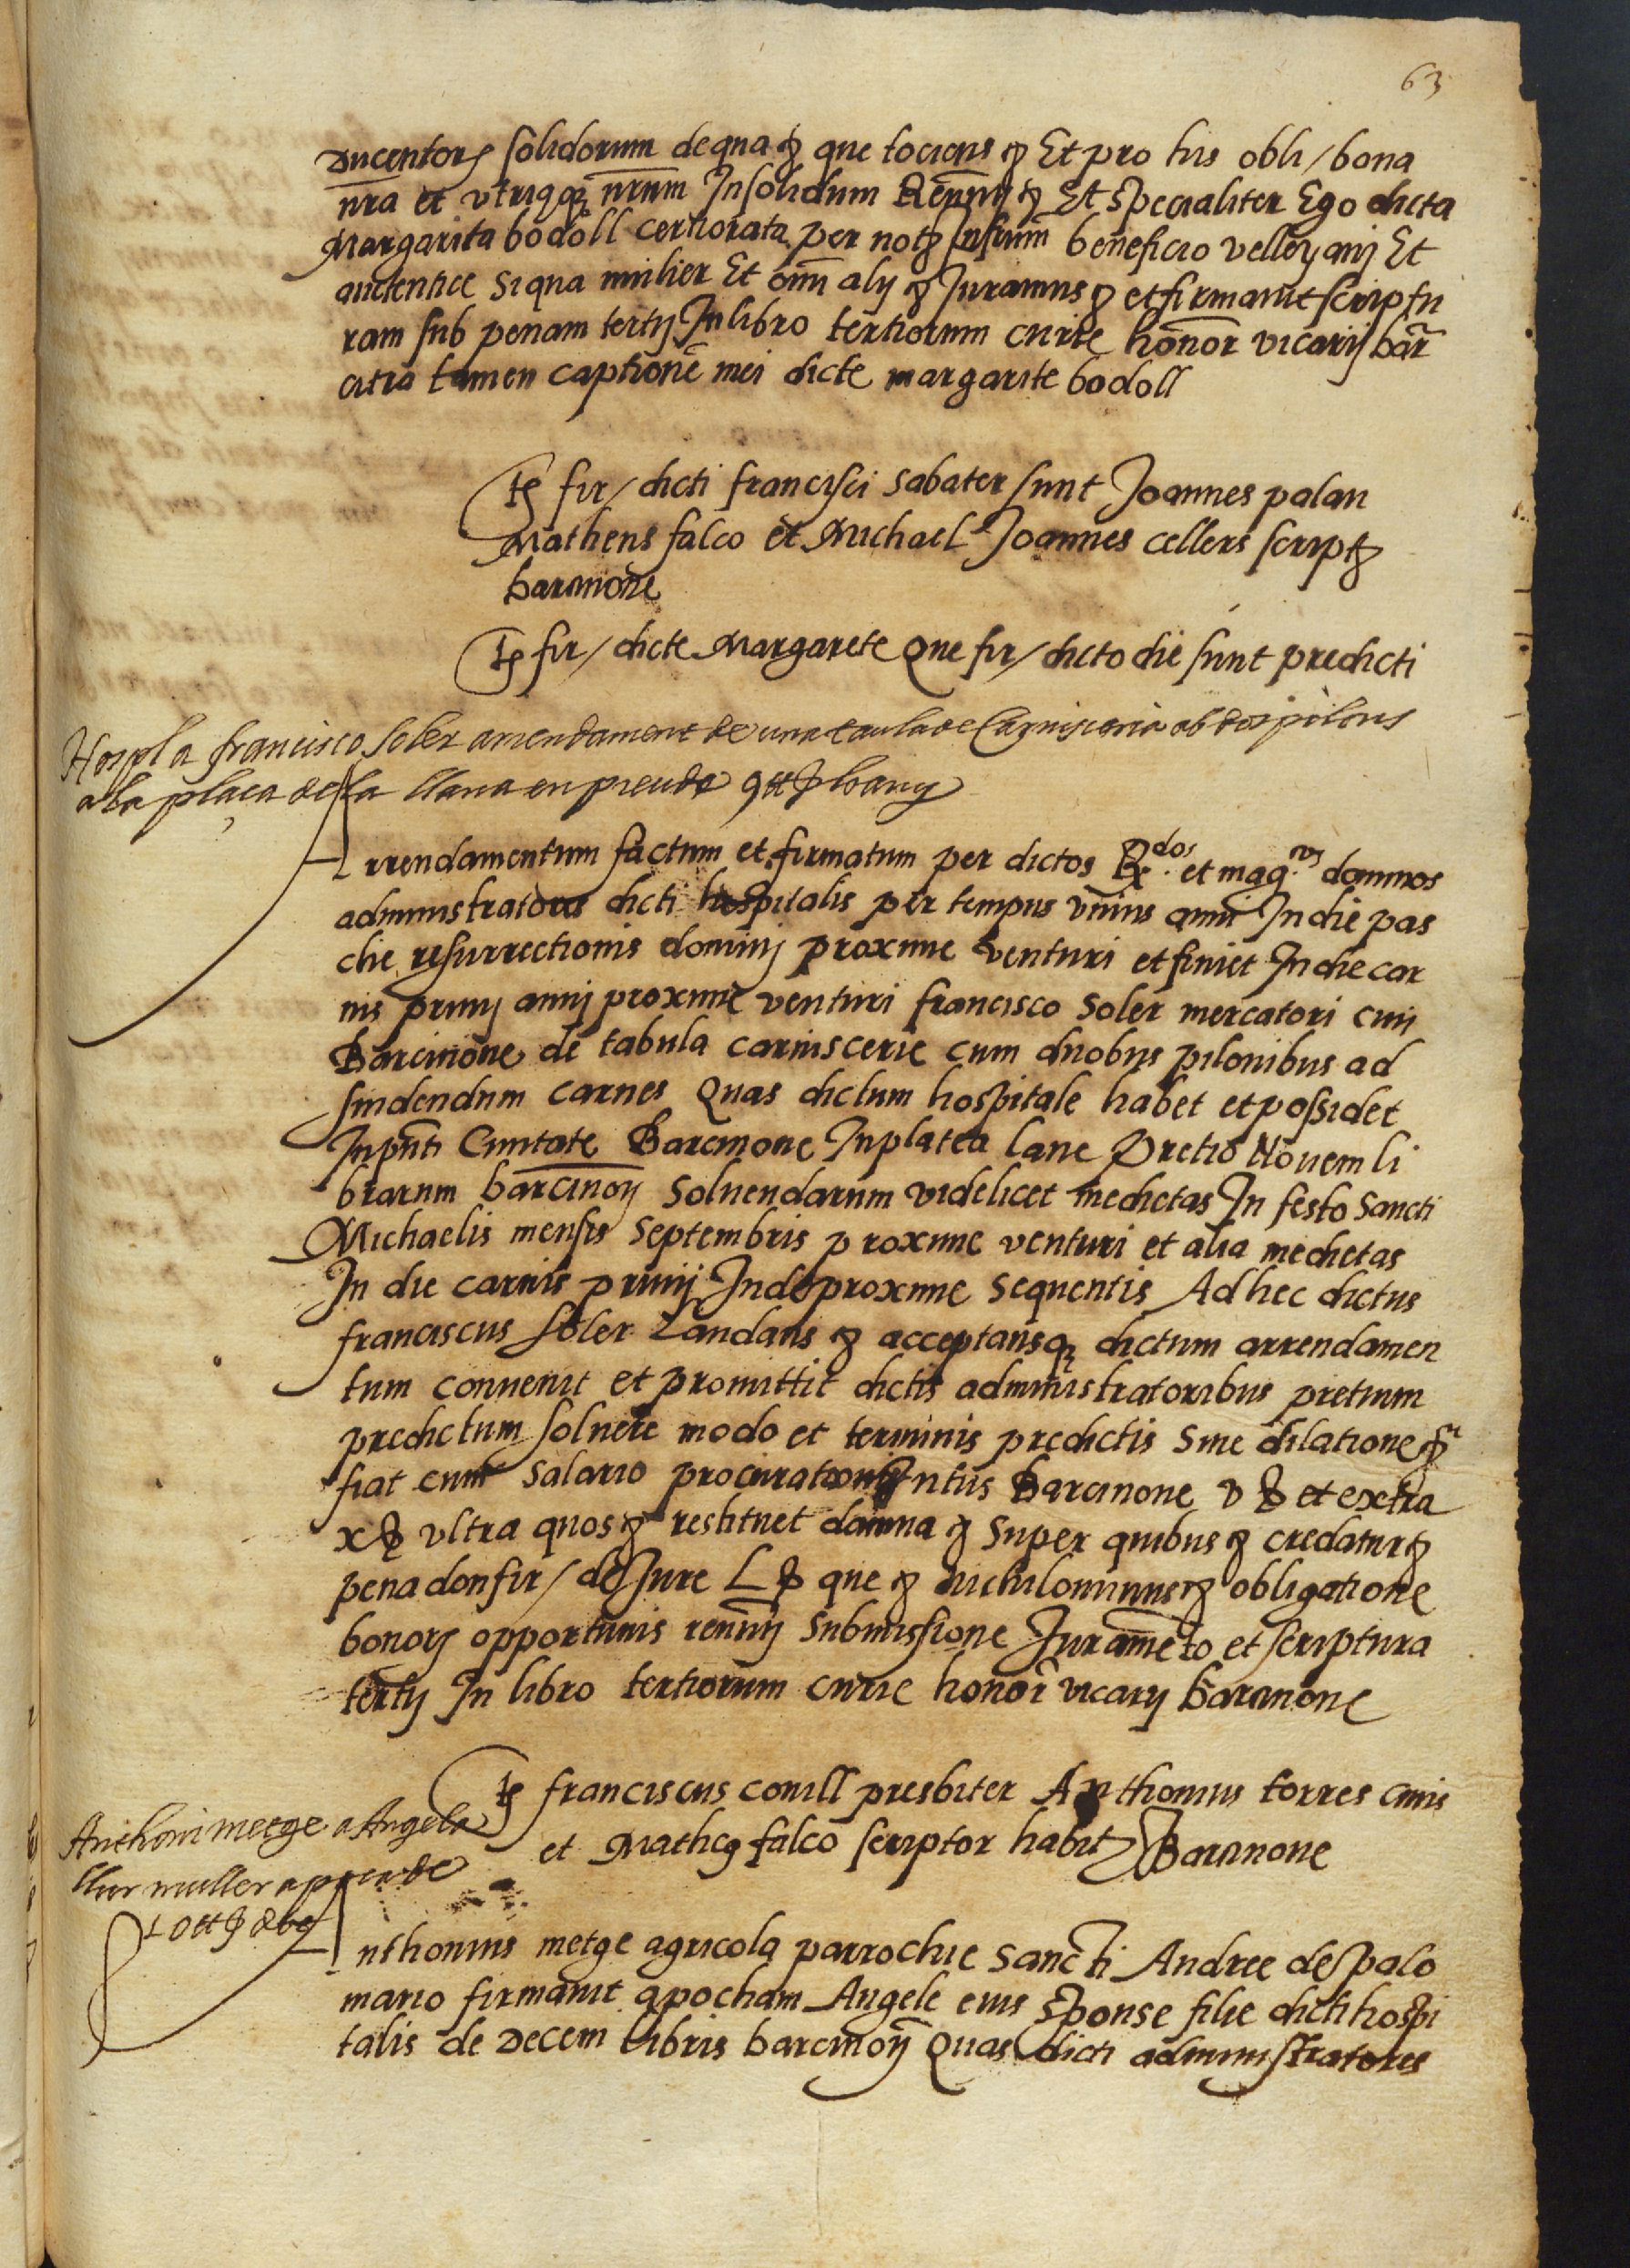 63
ducentorꝫ solidorum de qua ꝫ que tociens ꝫ Et pro his obli / bona
nr̄a et utriqꝫ nr̄um Insolidum Renun̄ ꝫ Et specialiter Ego dicta
Margarita bodoll certiorata per notꝫ Infrm̄ beneficio velleyanj Et
auctentice Si qua mulier Et om̄i alij ꝫ Juramus ꝫ et firmavit scriptu
ram sub penam tertij In libro tertiorum curie honor̄ vicarij bar̄
citra tamen captionē mei dicte margarite bodoll
tꝫ fir / dicti francisci Sabater sunt Joannes palau
Matheus falco et Michael Joannes cellers scriptꝫ
barcinone
tꝫ fir / dicte Margarete Que fir / dicto die sunt predicti
Hospl a francisco soler arrendament de una taula de Carnisceria ab dos pilons
a la plaça de la llana en preu de 9 tt ꝑ lo any
Arrendamentum factum et firmatum per dictos Rꝭ.dos et mag.cos dominos
administratores dicti hospitalis per tempus unius anni In die pas
che resurrectionis dominj proxime venturi et finiet In die car
nis privij annj proxime venturi francisco Soler mercatori civi
Barcinone de tabula carniscerie cum duobus pilonibus ad
sindendum carnes Quas dictum hospitale habet et possidet
In pn̄ti Civitate Barcinone In platea lane Pretio Novem li
brarum barcinoη Solvendarum videlicet medietas In festo Sancti
Michaelis mensis Septembris proxime venturi et alia medietas
In die carnis privij Inde proxime Sequentis Ad hec dictus
franciscus soler Laudans ꝫ acceptansqꝫ dictum arrendamen
tum convenit et promittit dictis administratoribus pretium
predictum solvere modo et terminis predictis Sine dilatione ꝫ
fiat cum Salario procurationis Intus Barcinone v ẞ et extra
x ẞ ultra quos ꝫ restituet damna ꝫ Super quibus ꝫ credatur ꝫ
pena don fir / de Jure L ẞ que ꝫ nichilominus ꝫ obligatione
bonorꝫ opportunis renun̄ Submissione Juramēto et scriptura
tertij In libro tertiorum curie honor̄ vicarij Barcinone
tꝫ franciscus conill presbiter Anthonius torres civis
et Matheꝰ falco scriptor habitꝫ Barcinone
Anthoni metge a Angela
llur muller apocha de
10 tt
Anthonius metge agricola parrochie Sancti Andree de palo
mario firmavit apocham Angele eius Sponse filie dicti hospi
talis de Decem libris barcinoη Quas dicti administratores